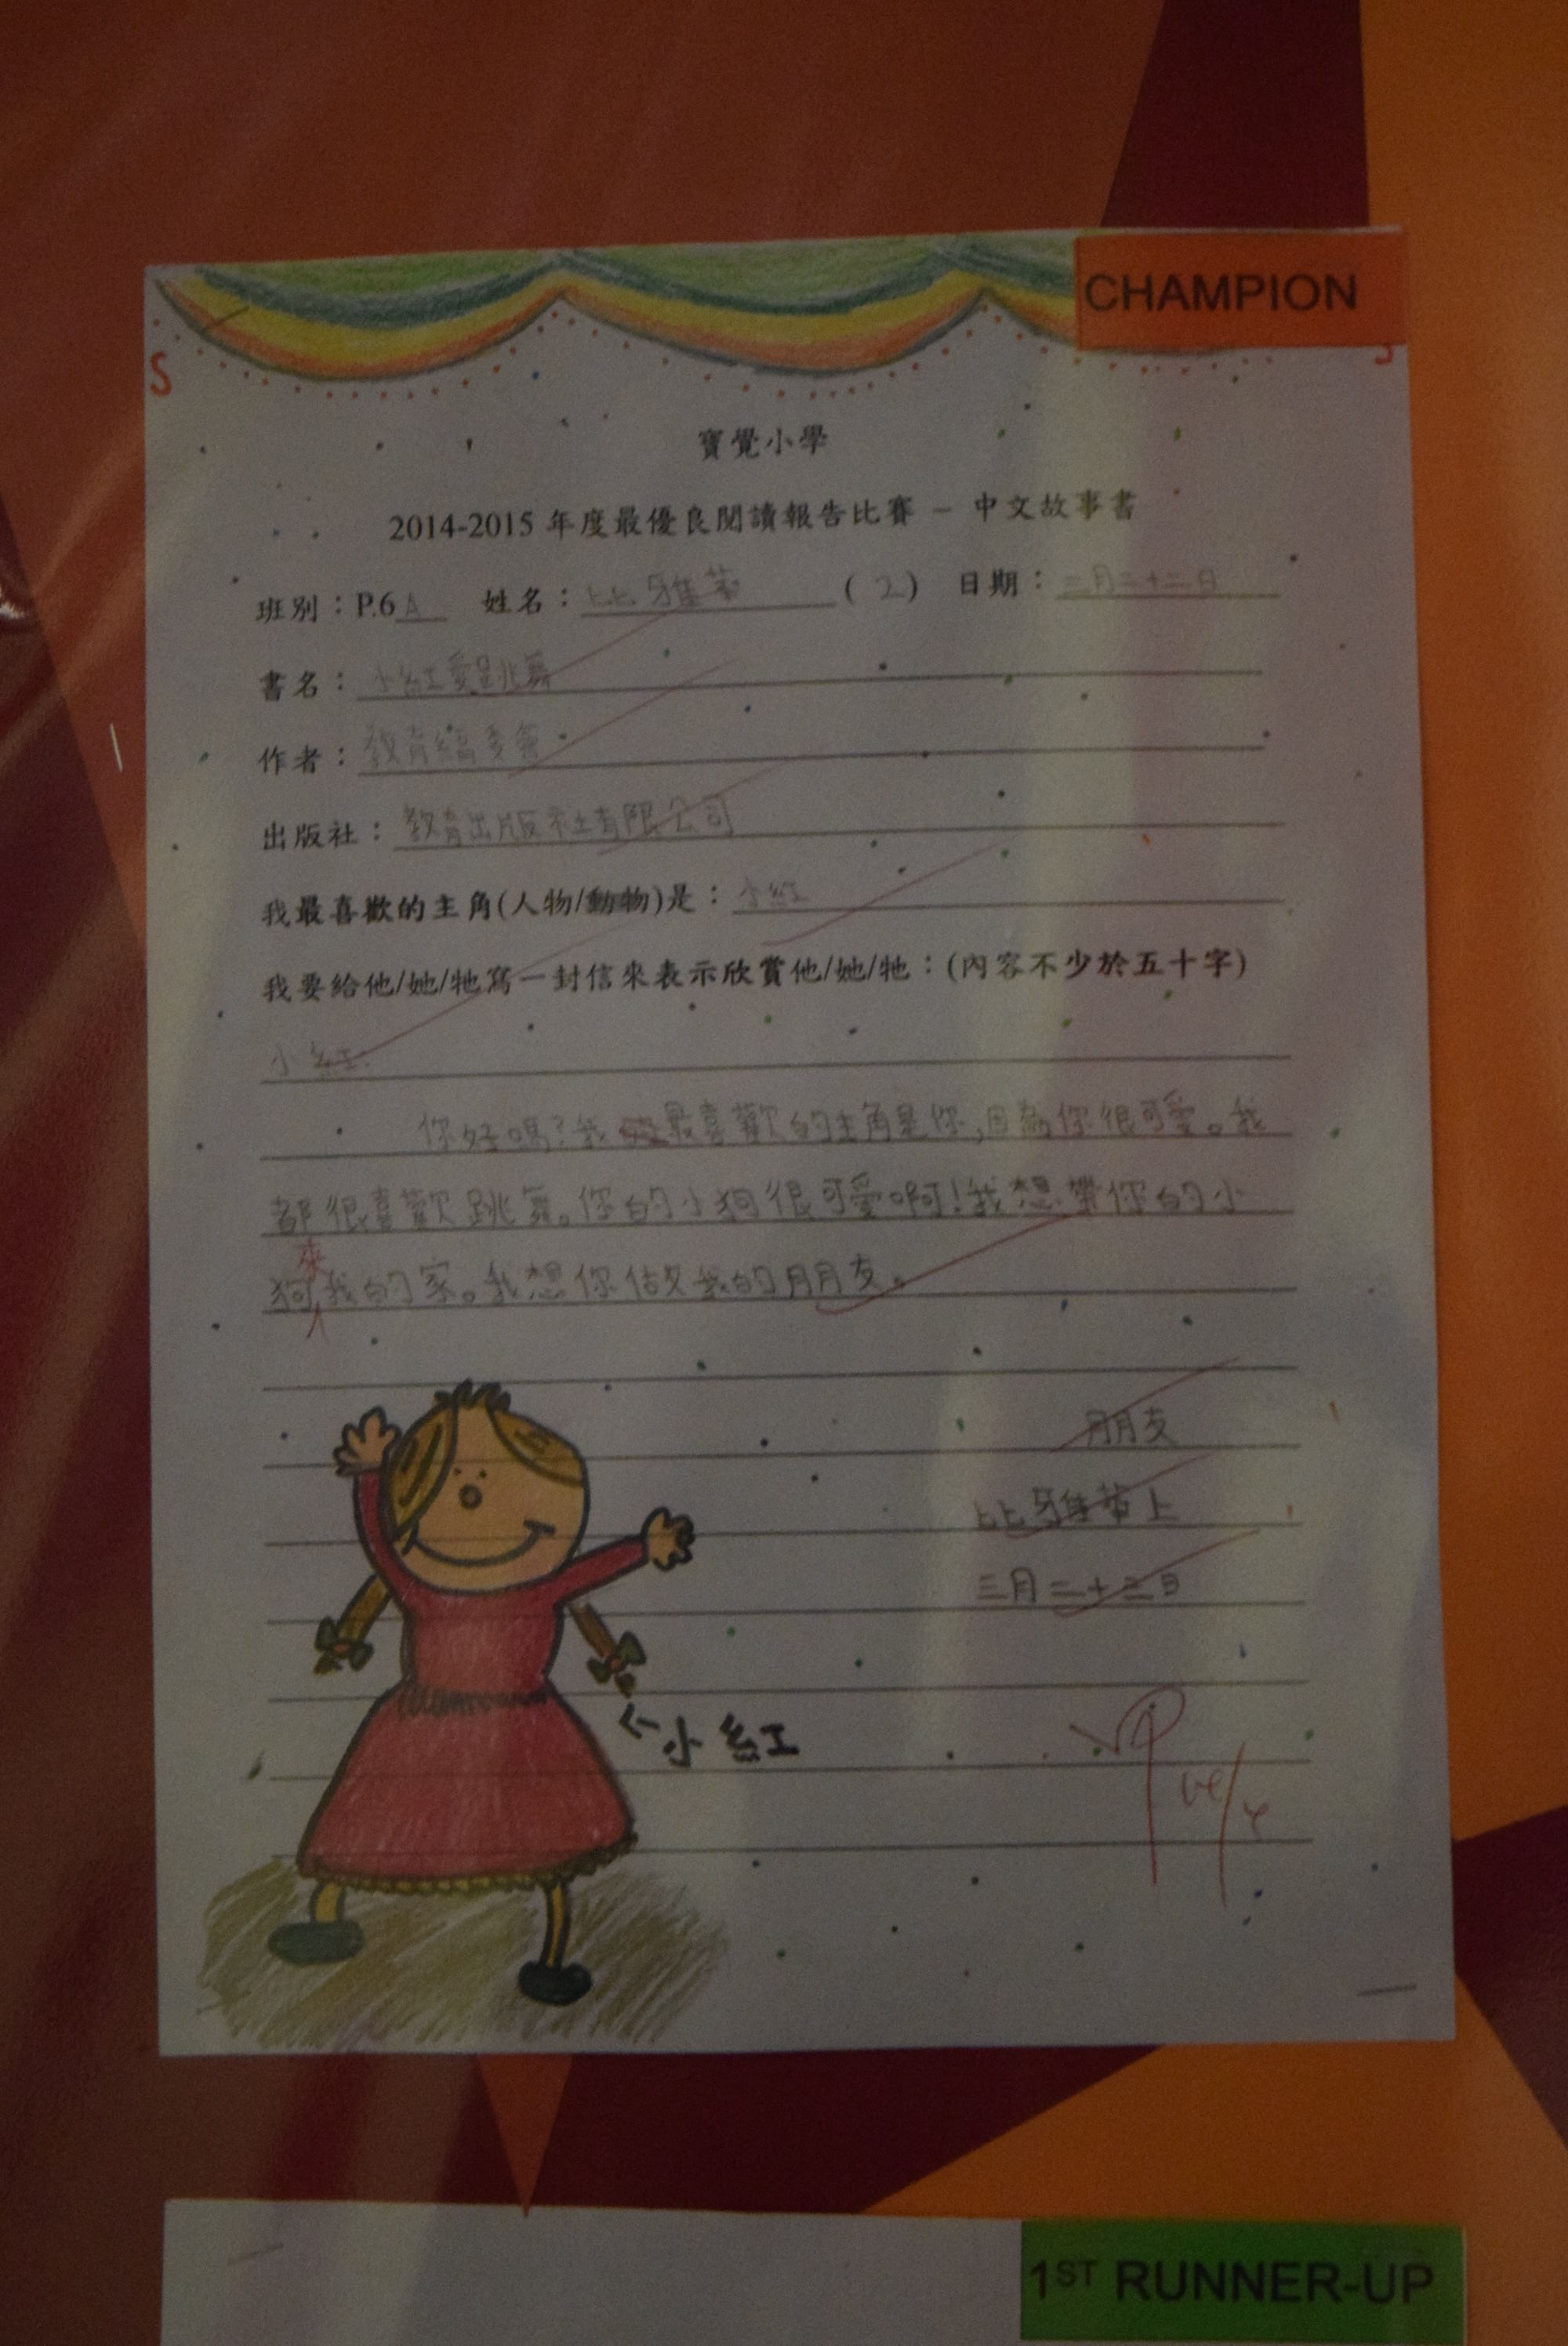 CHAMPION
S
寶覺小學
2014-2015 年度最優良閱讀報告比賽 – 中文故事書
班別：P.6A 姓名：比雅蒂 (2) 日期：三月二十三日
書名：小紅愛跳舞
作者：教育編委會
出版社：教育出版社有限公司
我最喜歡的主角(人物/動物)是：小紅
我要給他/她/牠寫一封信來表示欣賞他/她/牠：(內容不少於五十字)
小紅:
你好嗎?我最喜歡的主角是你,因為你很可愛。我
都很喜歡跳舞。你的小狗很可愛啊!我想帶你的小
狗來我的家。我想你做我的朋友。
朋友
比雅蒂上
三月二十三日
←小紅
1ST RUNNER-UP